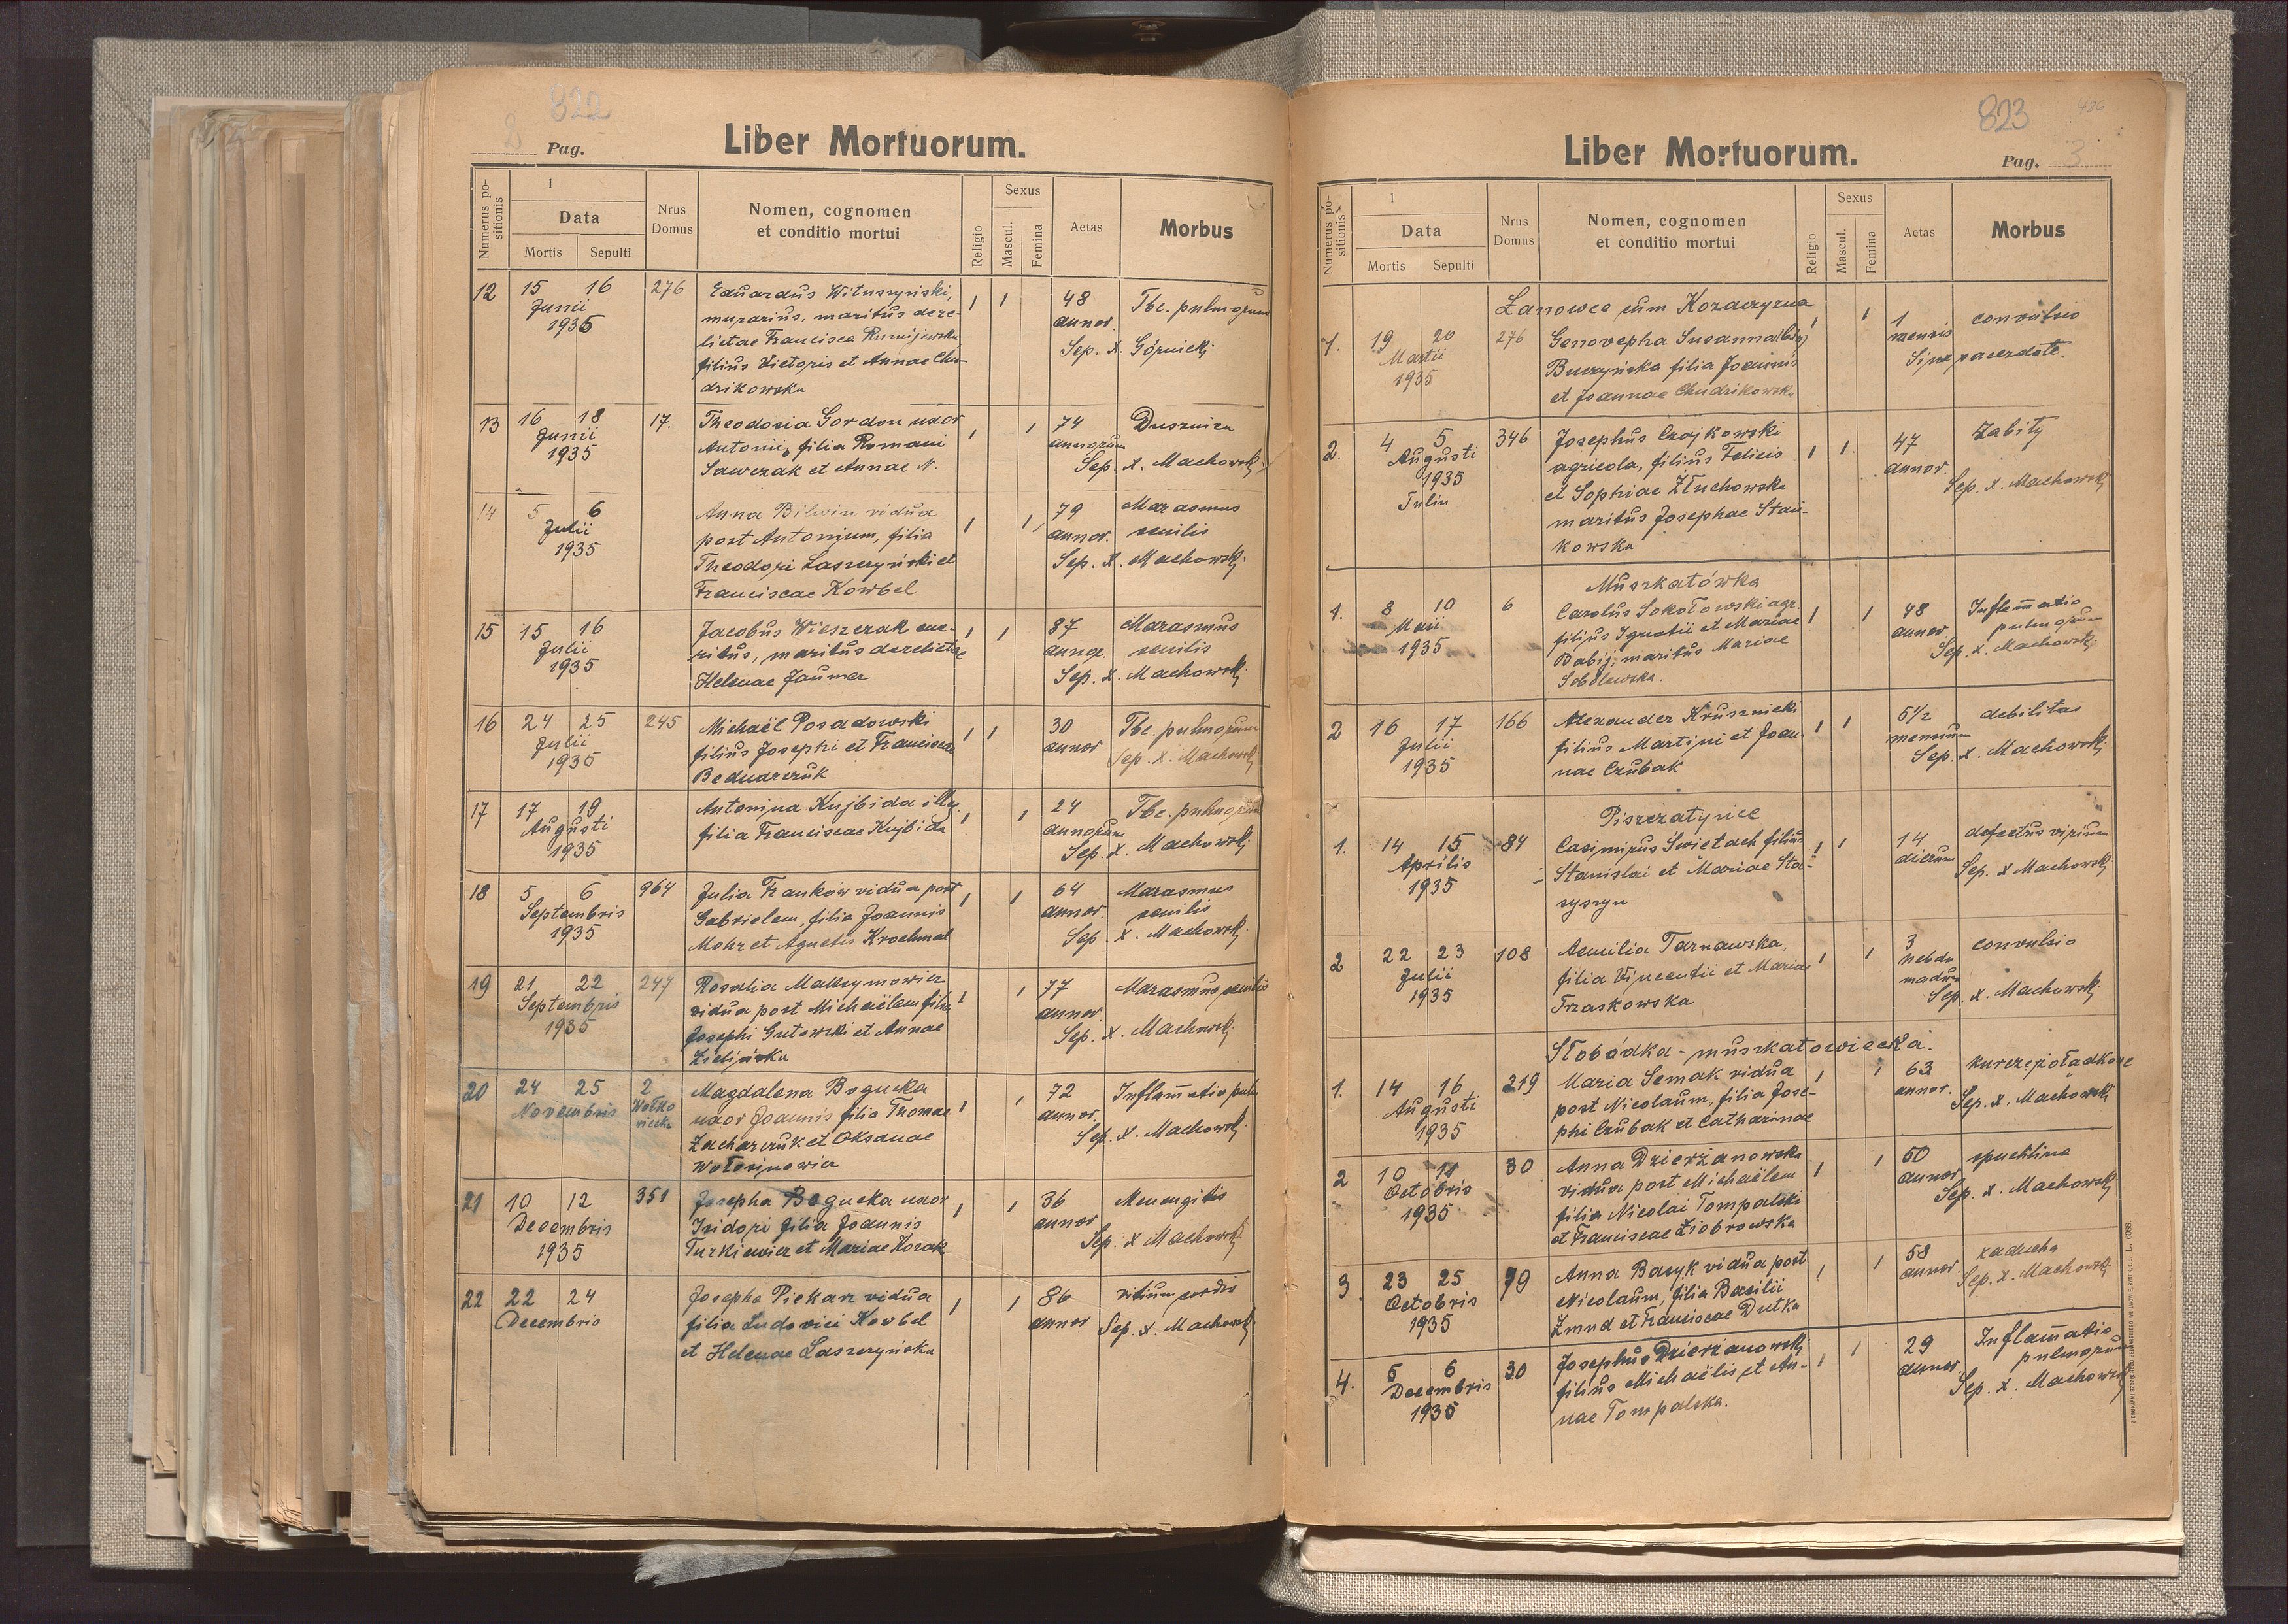 822
2 Pag.
Liber Mortuorum.
Numerus positionis
1
Data
Mortis Sepulti
Nrus Domus
Nomen, cognomen
et conditio mortui
Religio
Sexus
Mascul. Femina
Aetas
Morbus
12 15 16 276 Eduardus Wituszyński, 1 1 48 Tbc. pulmonum
Junii murarius, maritus dere- annor.
1935 lictae Francisca Sep. X. Górnicki
filius Victoris et Annae Chu-
drikowska
13 16 18 17. Theodosia Gordon uxor 1 1 74 Dusznica
Junii Antonii, filia Romani annorum
1935 Sawczak et Annae N. Sep. X. Machowski
14 5 6 Anna Bilwin vidua 1 1 79 Marasmus
Julii post Antonium, filia annor. senilis
1935 Theodori Laszczyński et Sep. X. Machowski.
Franciscae Kowbel
15 15 16 Jacobus Wieszczak eme- 1 1 87 Marasmus
Julii ritus, maritus derelictae annor. senilis
1935 Helenae Jaumer Sep. X. Machowski
16 24 25 245 Michaël Posadowski 1 1 30 Tbc. pulmonum
Julii filius Josephi et Franciscae annor Sep. X. Machowski
1935 Bednarczuk
17 17 19 Antonina Kujbida illeg. 1 1 24 Tbc. pulmonum
Augusti filia Franciscae Kujbida annorum
1935 Sep. X. Machowski
18 5 6 964 Julia Franków vidua post 1 1 64 Marasmus
Septembris Gabrielem, filia Joannis annor. senilis
1935 Mohr et Agnetis Krochmal Sep X. Machowski.
19 21 22 247 Rosalia Maksymowicz 1 1 77 Marasmus senilis
Septembris vidua post Michaëlem filia annor
1935 Josephi Gutowski et Annae Sep. X. Machowski.
Zielińska
20 24 25 2 Magdalena Bogucka 1 1 72 Inflam̄atio pulm
Novembris Wołkowiecka uxor Joannis filia Thomae annor.
Zacharczuk et Oksanae Sep. X. Machowski.
Wołosinowicz
21 10 12 351 Josepha Bogucka uxor 1 1 36 Menengitis
Decembris Isidori filia Joannis annor
1935 Turkiewicz et Mariae Kozak Sep. X Machowski.
22 22 24 Josepha Piekarz vidua 1 1 86 vitium cordis
Decembris filia Ludovici Kowbel annor Sep. X. Machowski
et Helenae Laszczyńska
823 486
Liber Mortuorum.
Pag. 3
Numerus positionis
1
Data
Mortis Sepulti
Nrus Domus
Nomen, cognomen
et conditio mortui
Religio
Sexus
Mascul. Femina
Aetas
Morbus
Łanowce cum Kozaczyzna
1. 19 20 276 Genovepha Susanna 1 1 1 convulsio
Martii Buczyńska filia Joannis mensis
1935 et Joannae Chudzikowska Sine sacerdote.
2. 4 5 346 Josephus Czajkowski 1 1 47 Zabity
Augusti agricola, filius Felicis annor.
1935 et Sophiae Złuchowska Sep. X. Machowski
Tulin maritus Josephae Stan-
kowska
Muszkatówka
1. 8 10 6 Carolus Sokołowski agr. 1 1 48 Inflam̄atio
Maii filius Ignatii et Mariae annor. pulmonum
1935 Babij, maritus Mariae Sep. X. Machowski.
Sobolewska.
2 16 17 166 Alexander Kruszniek 1 1 5 1/2 debilitas
Julii filius Martini et Joan- mensium
1935 nae Czubak Sep. X. Machowski.
Piszczatyńce
1. 14 15 84 Casimirus Świetach filius 1 1 14 defectus virium
Aprilis Stanislai et Mariae Sta- dierum Sep. X Machowski
1935 syszyn
2 22 23 108 Aemilia Tarnawska, 1 1 3 convulsio
Julii filia Vincentii et Mariae hebdo
1935 Trzaskowska madum Sep. X. Machowski
Słobódka - muszkatowiecka.
1. 14 16 219 Maria Semak vidua 1 1 63 kurcze żołądkowe
Augusti post Nicolaum, filia Jose- annor. Sep. X. Machowski
1935 phi Czubak et Catharinae
2 10 11 30 Anna Dzierżanowska 1 1 50 spuchlina
Octobris vidua post Michaëlem annor
1935 filia Nicolai Tompalski Sep. X. Machowski
et Franciscae Ziobrowska
3. 23 25 79 Anna Basyk vidua post 1 1 58 zaducha
Octobris Nicolaum, filia Basilii annor. Sep. X. Machowski
1935 Żmud et Franciscae Dutka
4. 5 6 30 Josephus Dzierżanowski 1 1 29 Inflam̄atio
Decembris filius Michaëlis et An- annor. pulmonum
1935 nae Tompalska. Sep. X. Machowski